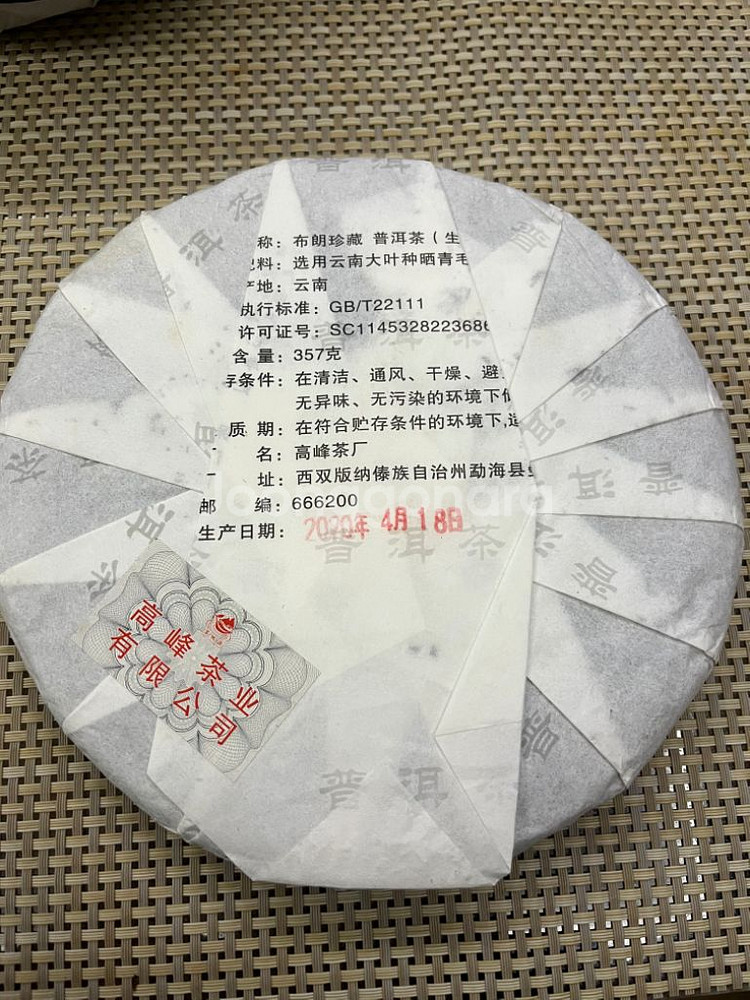 称：布朗珍藏 普洱茶（生
料：选用云南大叶种晒青毛
地：云南
执行标准：GB/T22111
许可证号：SC114532822368
含 量：357克
存条件：在清洁、通风、干燥、避
无异味、无污染的环境下
质 期：在符合贮存条件的环境下,
名：高峰茶厂
址：西双版纳傣族自治州勐海县
邮 编：666200
生产日期：2020年 4月18日
高峰茶业
有限公司
普洱茶
普洱